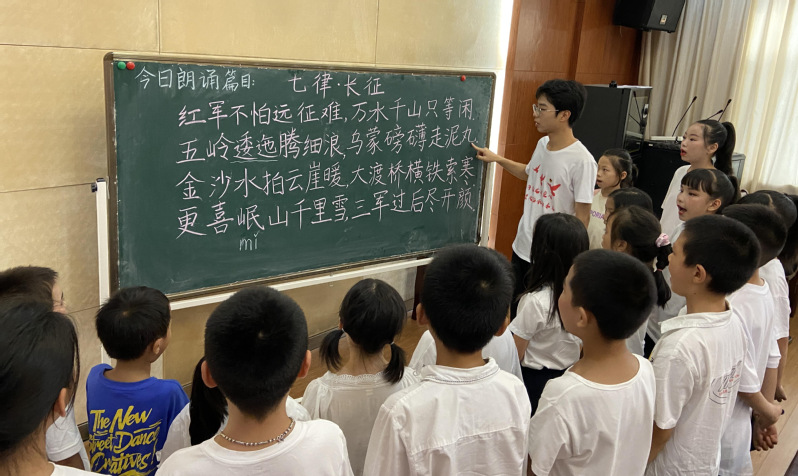 今日朗诵篇目: 七律·长征
红军不怕远征难,万水千山只等闲.
五岭逶迤腾细浪,乌蒙磅礴走泥丸
金沙水拍云崖暖,大渡桥横铁索寒
更喜岷山千里雪,三军过后尽开颜
mí
The New
Street Dance
Creatives!